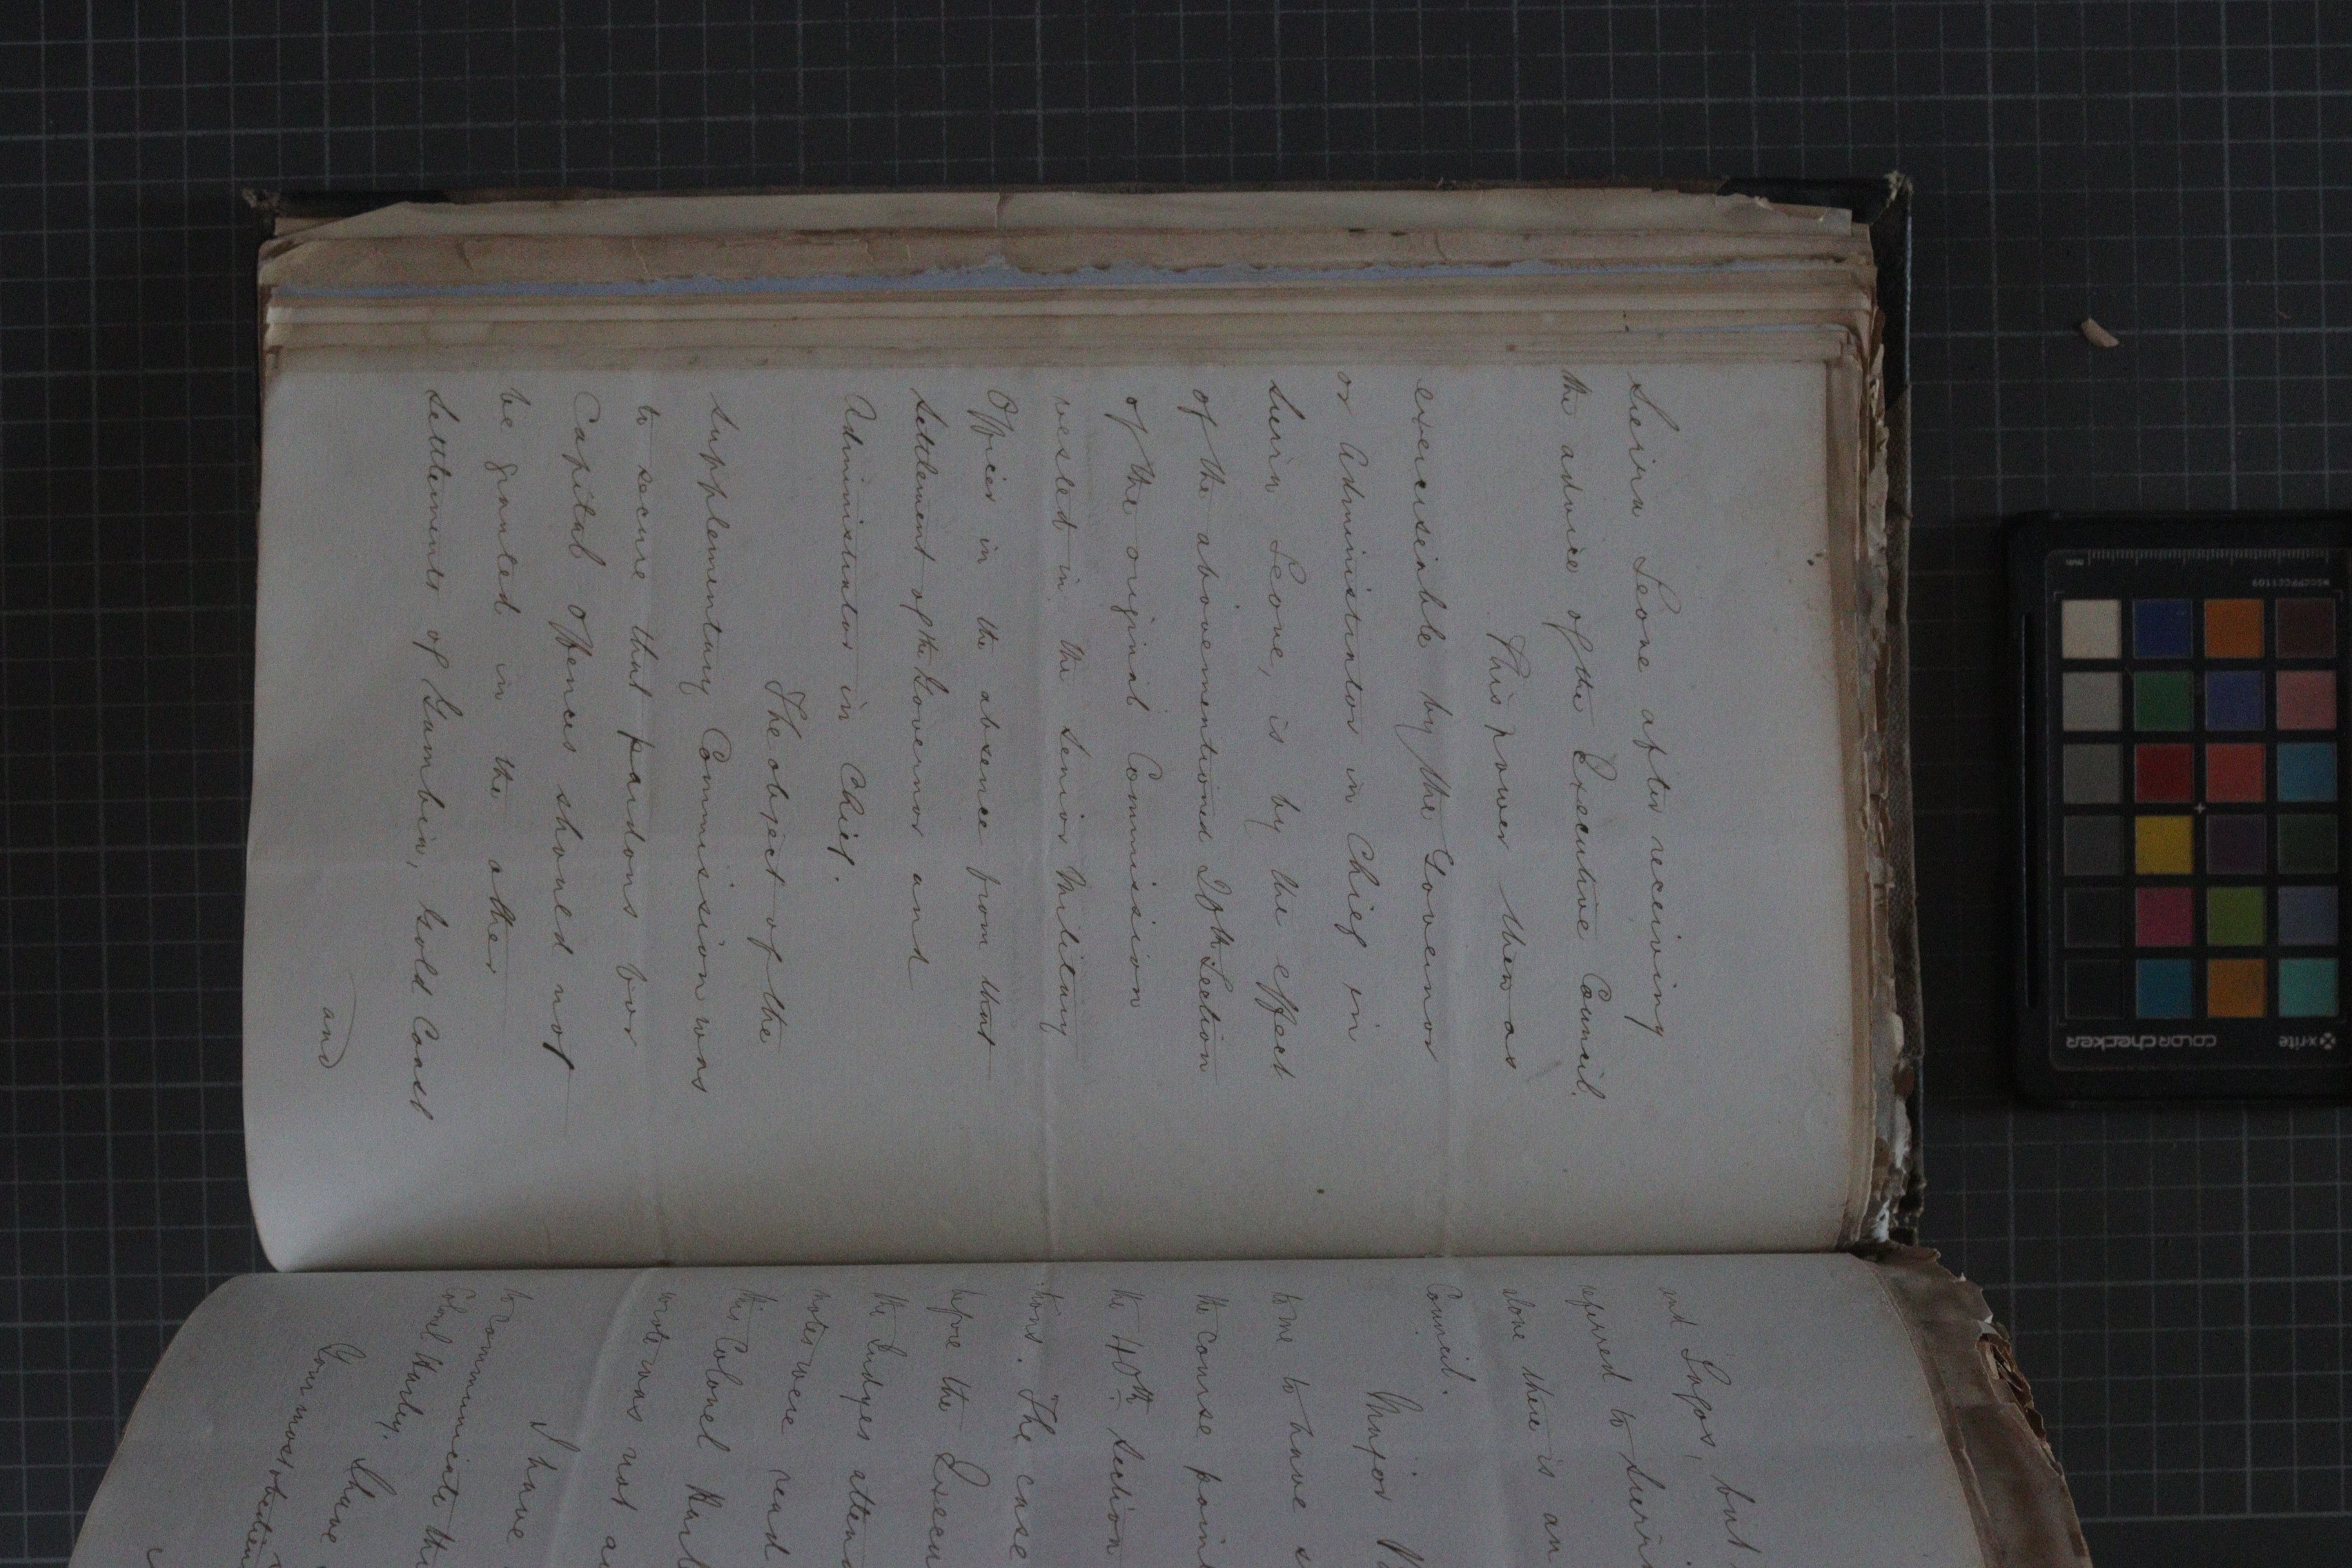 Seirra Leone after receiving
the advice of the Executive Council.
This power then as
exerciseable by the Governor
or Administrator in Chief in
Seirra Leone, is by the effect
of the abovementioned Section
of the original Commission
vested in the Senior Military
Officer in the absence from that
Settlement of the Governor and
Administrator in Chief.
The object of the
Supplementary Commission was
to secure that pardons for
Capital Offences should not
be granted in the other
Settlements of Gambia, Gold Coast
and
and Lagos, but
referred to Seirra
Leone there is an
Council.
Major
to me to have
the course
the 40th Section
tions. The case
before the
the Judges
notes were read
this Colonel
wrote was not
I have
to communicate
Colonel Harley.
I have
Your most
xrite
colorchecker
MSCCPPCC1109
mm